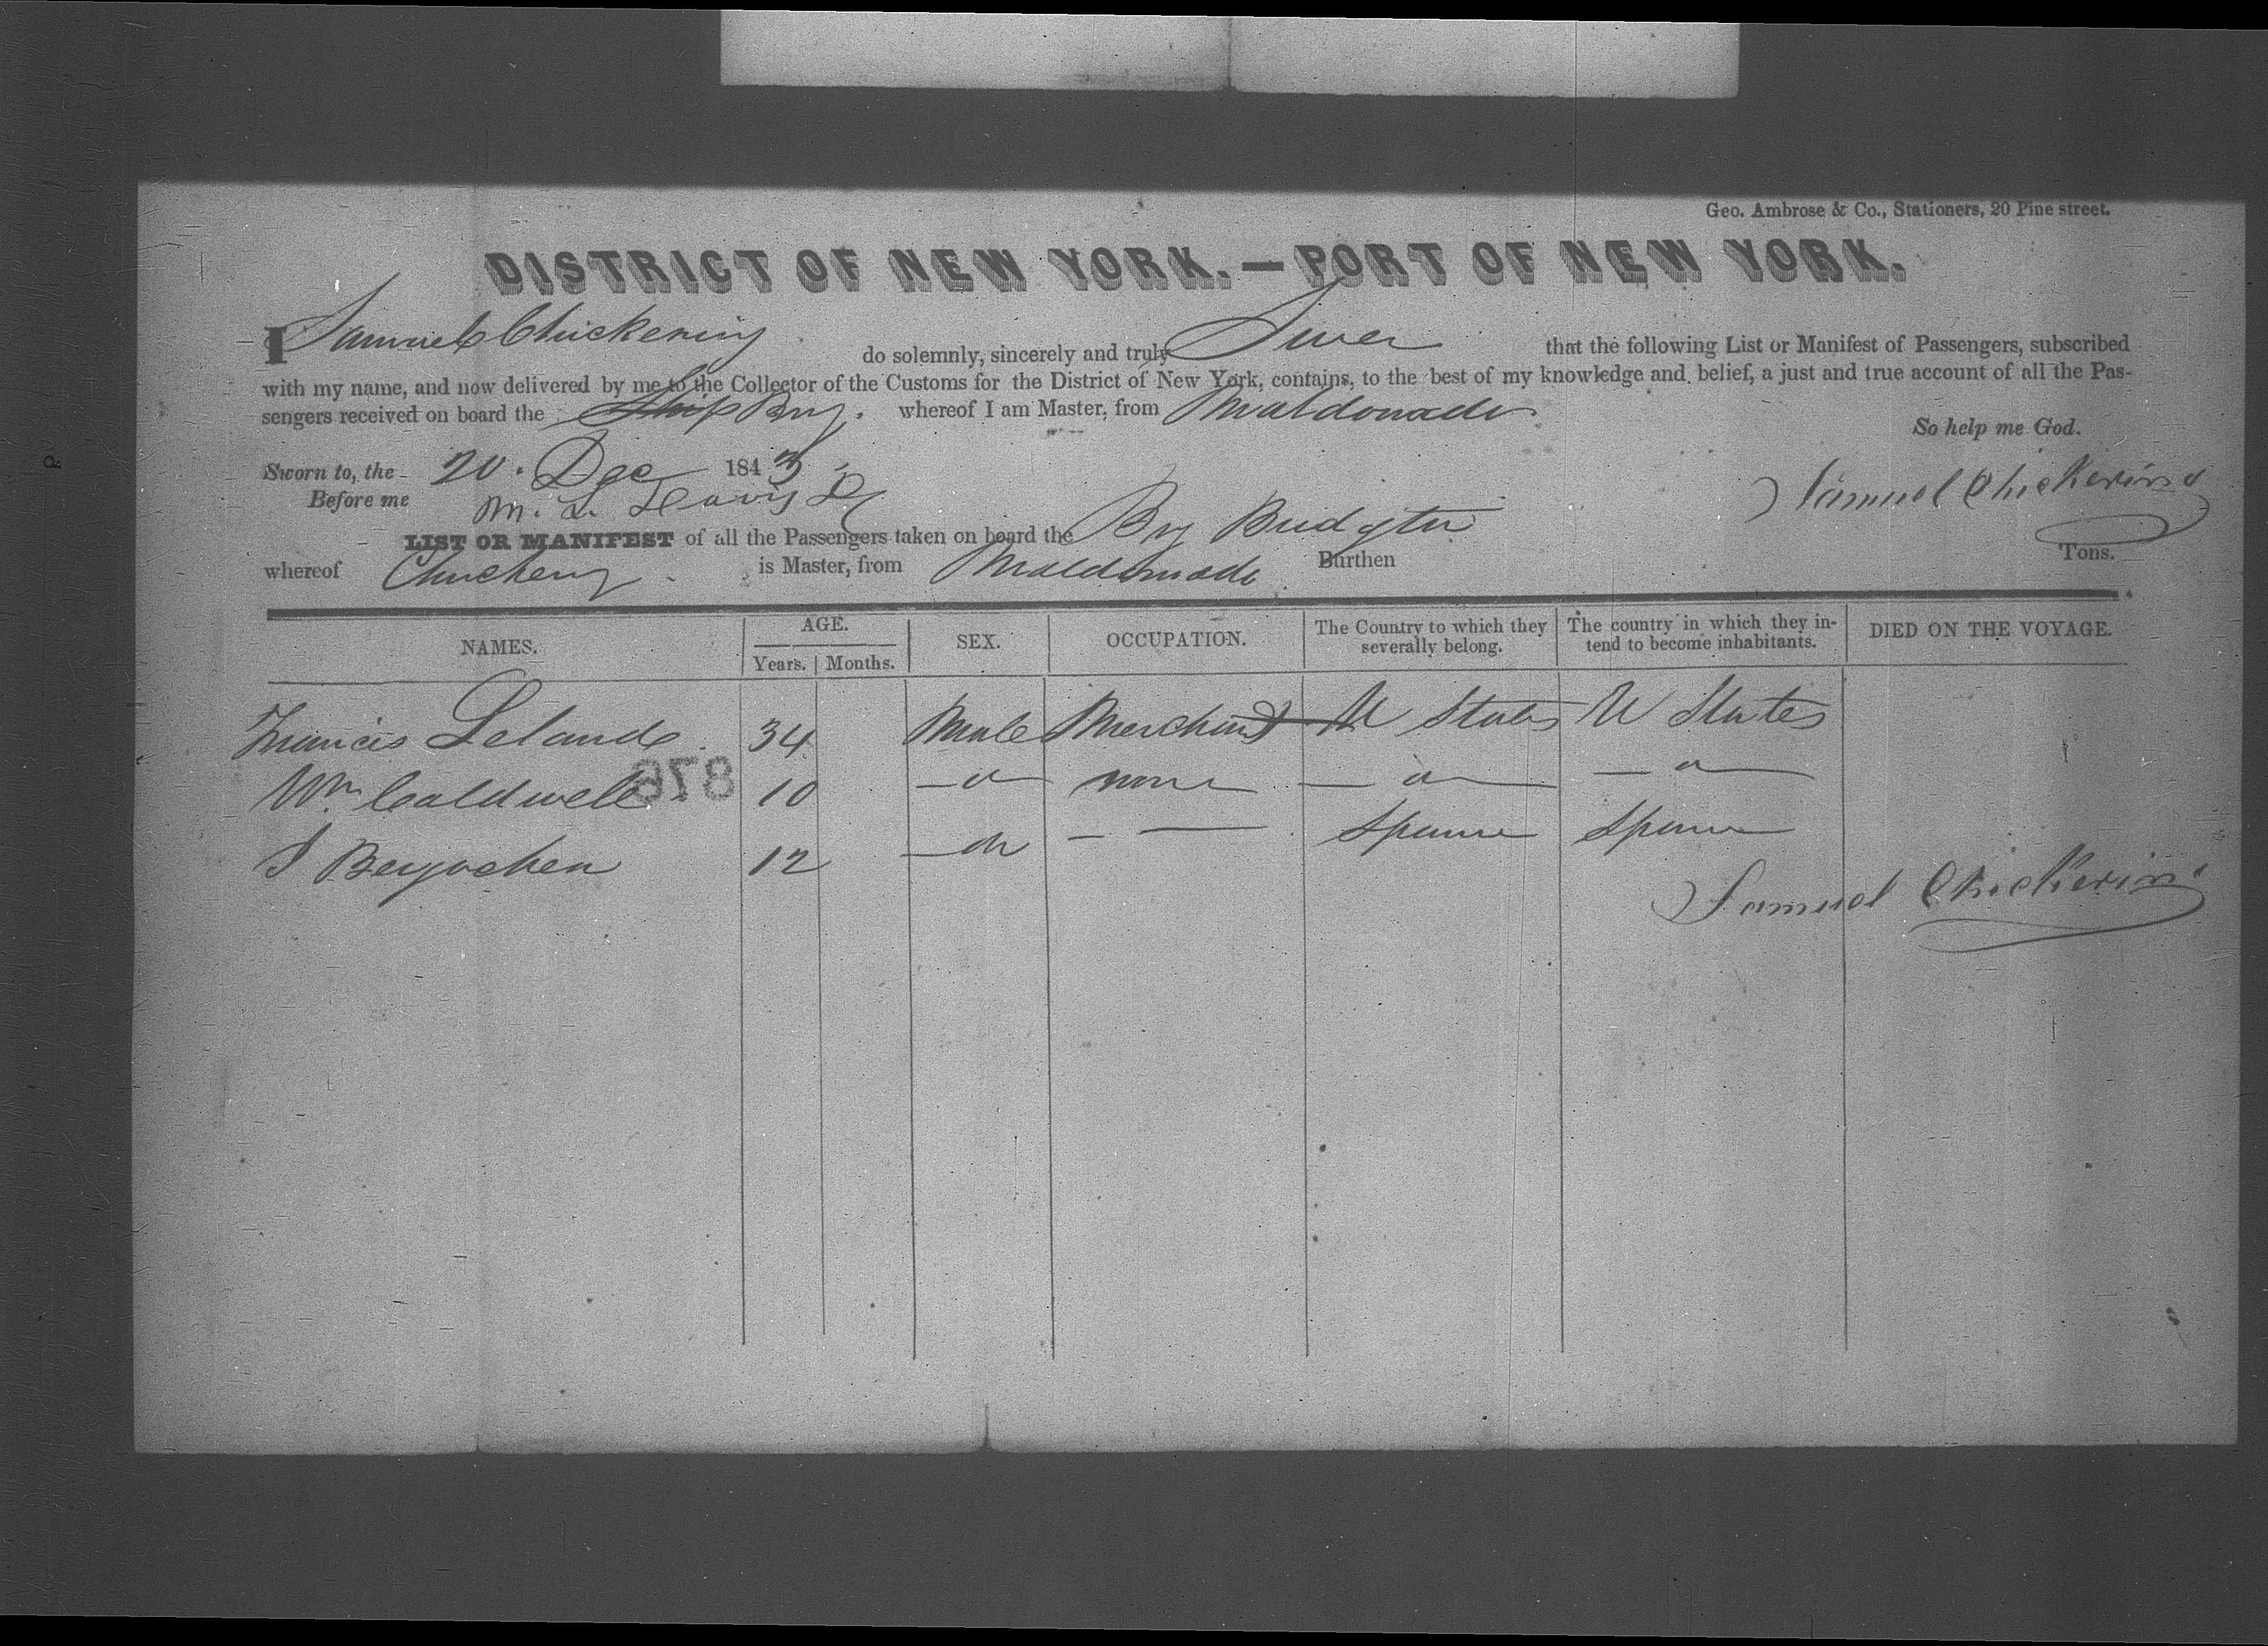 Geo. Ambrose & Co., Stationers, 20 Pine street.
DISTRICT OF NEW YORK.—PORT OF NEW YORK.
I Samuel Chickering do solemnly, sincerely and truly Swear that the following List or Manifest of Passengers, subscribed
with my name, and now delivered by me to the Collector of the Customs for the District of New York, contains, to the best of my knowledge and belief, a just and true account of all the Pas-
sengers received on board the Ship Brig. whereof I am Master, from Maldonado
So help me God.
Sworn to, the 20. Dec 1843
Samuel Chickering
Before me M. L. Davis
LIST OR MANIFEST of all the Passengers taken on board the Brig Bridgton
whereof Chickering is Master, from Maldonado Burthen Tons.
NAMES. AGE. Years. Months. SEX. OCCUPATION. The Country to which they severally belong. The country in which they in-tend to become inhabitants. DIED ON THE VOYAGE.
Francis Leland 34 Male Merchant U States U States
Wm Caldwell 10 — do none — do — — do —
876
12 — do — — Spain Spain
Samuel Chickering